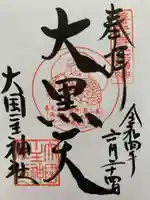 奉拝
大黒天
大国主神社
令和四年
六月二十四日